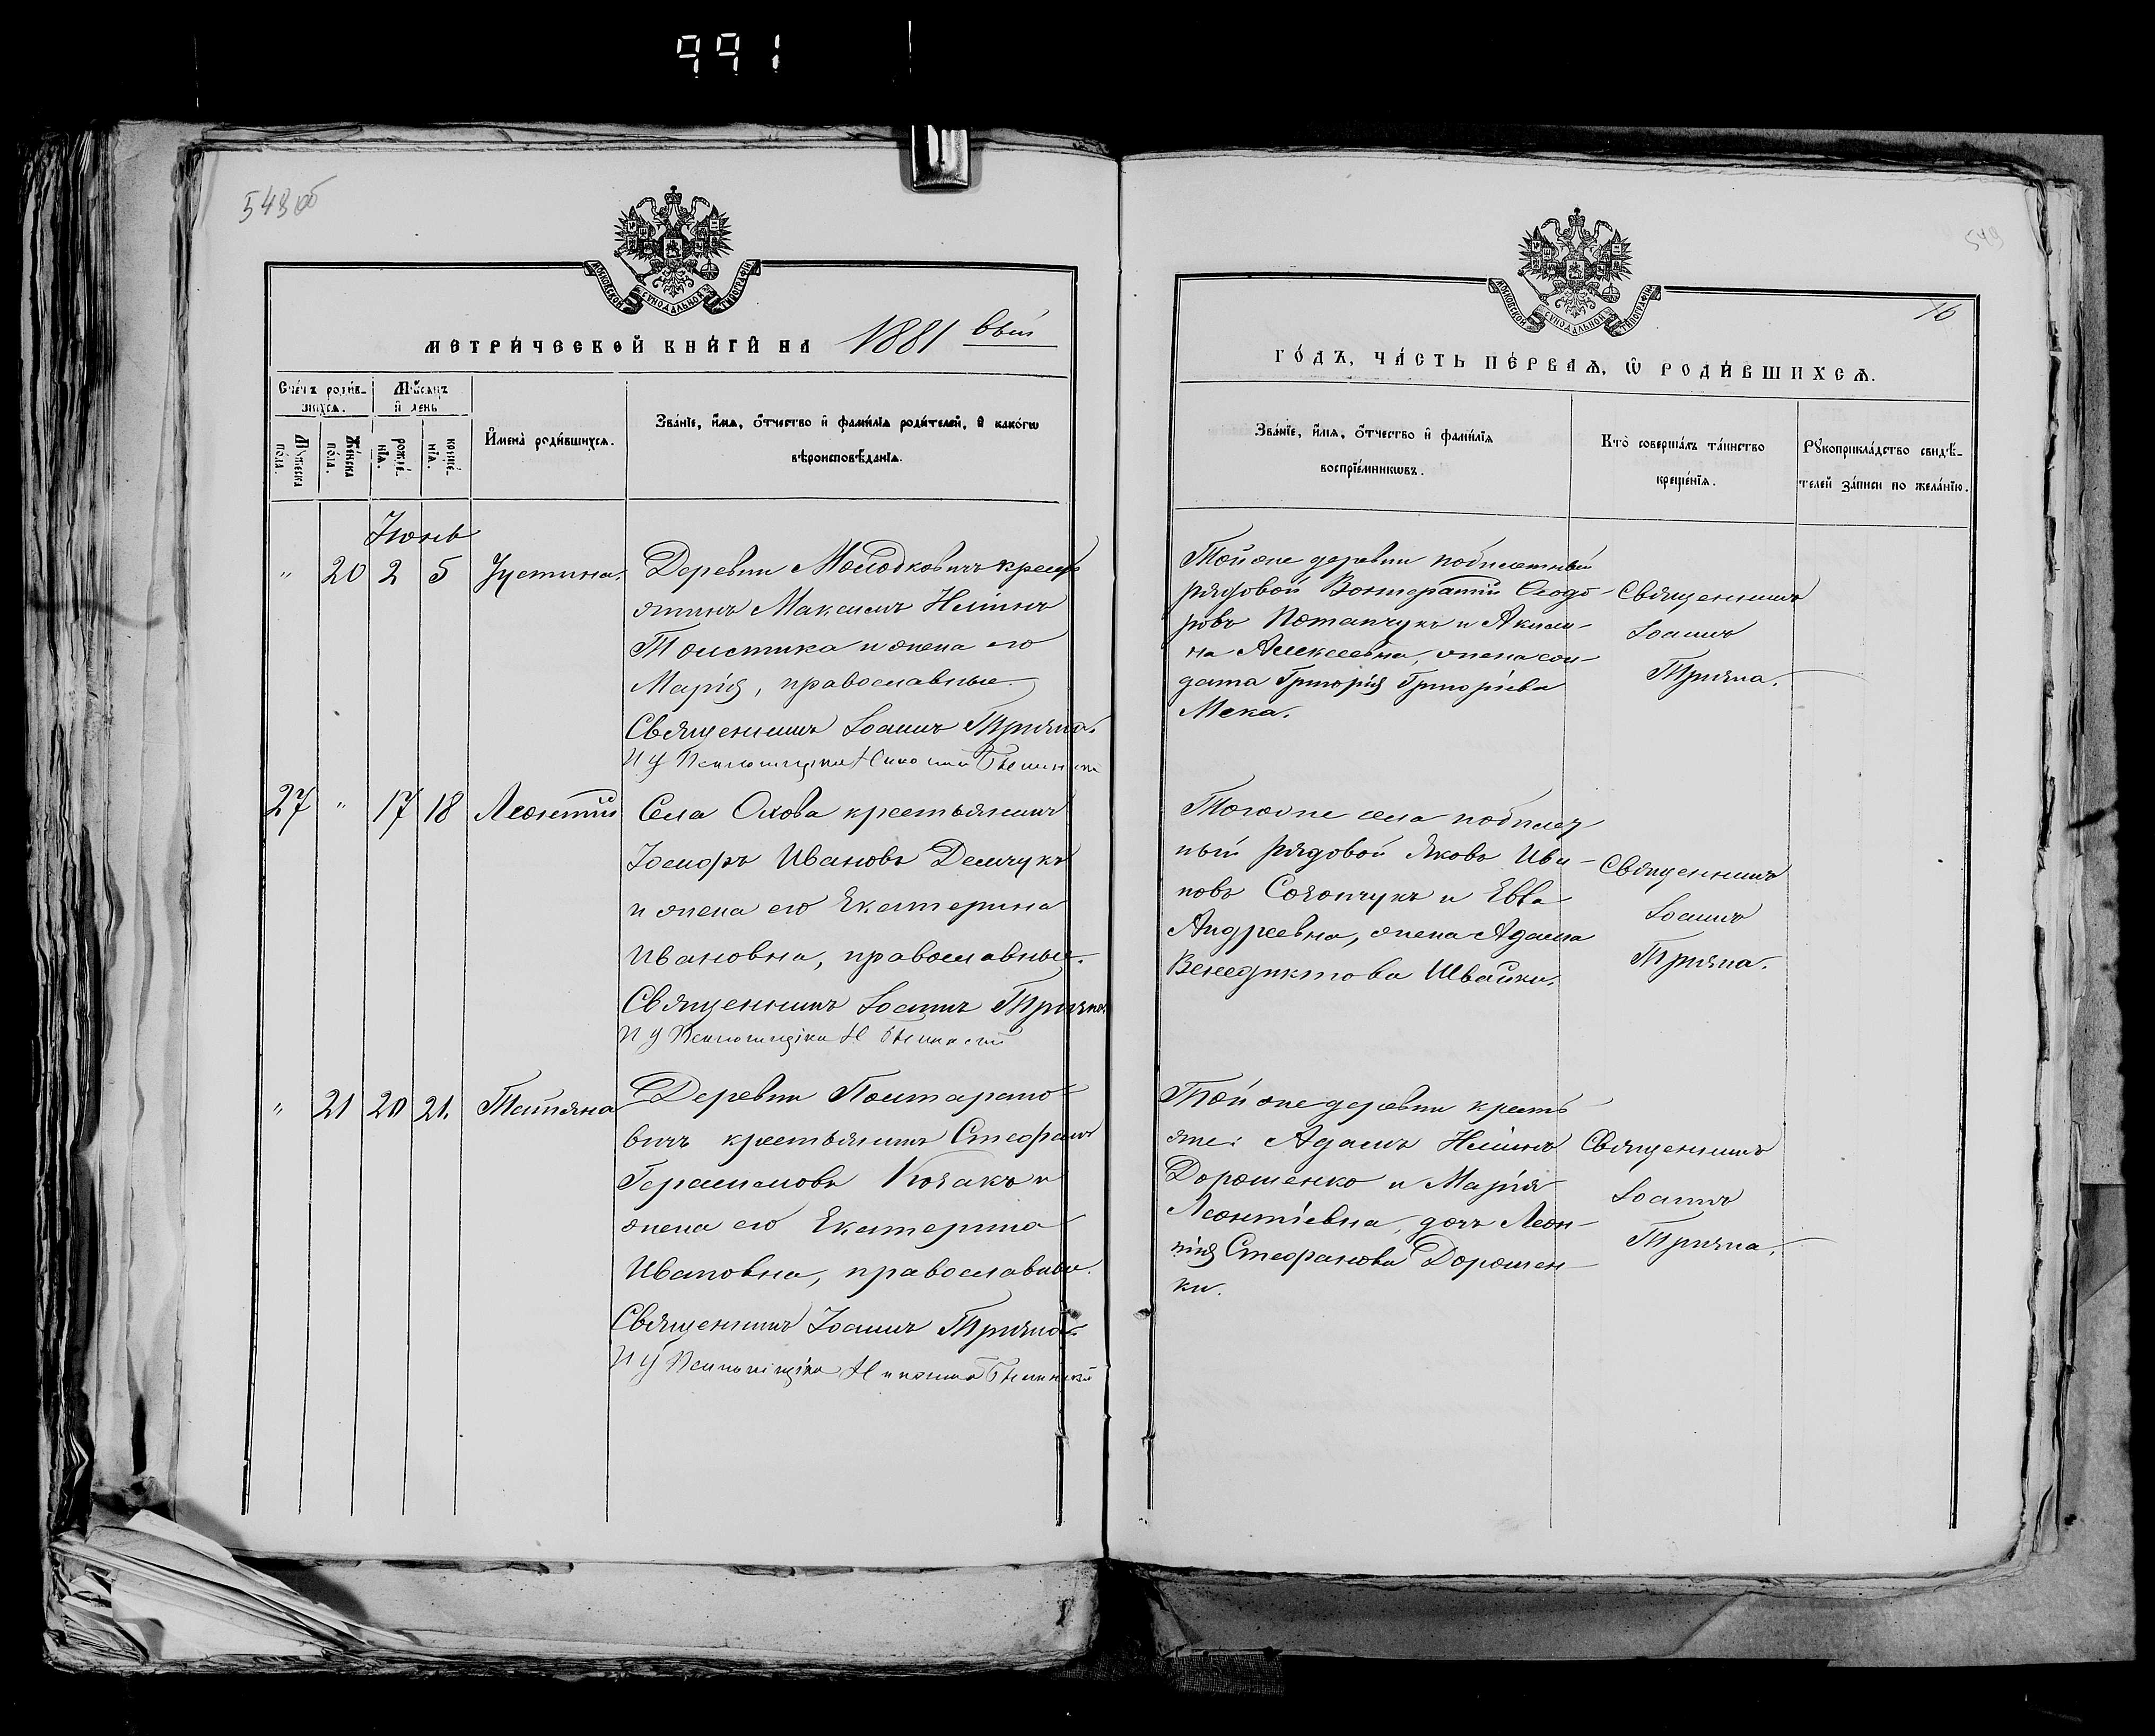 991
548об
МОСКОВСКОЙ СѴНОДАЛЬНОЙ ТИПОГРАФІИ
МЕТРИ́ЧЕСКОЙ КНИ́ГИ НА 1881 вый
Сче́тъ роди́в-
шихся.
Мѣ́сяцъ
и҆ день
Му́жеска
по́ла.
Же́нска
по́ла.
рожде́-
нїѧ.
креще́-
нїѧ.
И҆мена̀ роди́вшихсѧ.
Зва́нїе, и҆́мѧ, ѻ҆́тчество и҆ фами́лїѧ роди́телей, и҆ како́гѡ
вѣроисповѣ́данїѧ.
Іюнь
" 20 2 5 Іустина.
Деревни Молодковичъ кресть
янинъ Максимъ Иліинъ
Толстика и жена его
Марія, православные.
Священникъ Іоаннъ Тржяпа.
И д Псаломщика
27 " 17 18 Леонтій
Села Охова крестьянинъ
Іосифъ Ивановъ Демчукъ
и жена его Екатерина
Ивановна, православные.
Священникъ Іоаннъ
И д Псаломщика Н
" 21 20 21. Татіяна
Деревни Полтарано-
вичъ крестьянинъ Стефанъ
Герасимовъ Козакъ и
жена его Екатерина
Ивановна, православные.
Священникъ Іоаннъ
И д Псаломщика Николай
549
16
МОСКОВСКОЙ СѴНОДАЛЬНОЙ ТИПОГРАФІИ
ГО́ДЪ, ЧА́СТЬ ПЕ́РВАѦ, Ѡ҆ РОДИ́ВШИХСѦ.
Зва́нїе, и҆́мѧ, ѻ҆́тчество и҆ фами́лїѧ
воспрїе́мникѡвъ.
Кто̀ соверша́лъ та́инство
креще́нїѧ.
Рꙋкоприкла́дство свидѣ́-
телей за́писи по жела́нїю.
Той же деревни побилетный
рядовой Ѳеодо-
ровъ Потапчукъ и Акили-
на Алексеевна, жена сол-
дата Григорія Григоріева
Мека.
Священникъ
Іоаннъ
Того же села побилет
ный рядовой Яковъ Ива-
новъ и Евва
Андреевна, жена Адама
Венедиктова Швайки.
Священникъ
Іоаннъ
Той же деревни кресть
яне: Адамъ Иліинъ
Дорошенко и Марія
Леонтіевна, дочь Леон-
тія Стефанова Дорошен-
ки.
Священникъ
Іоаннъ